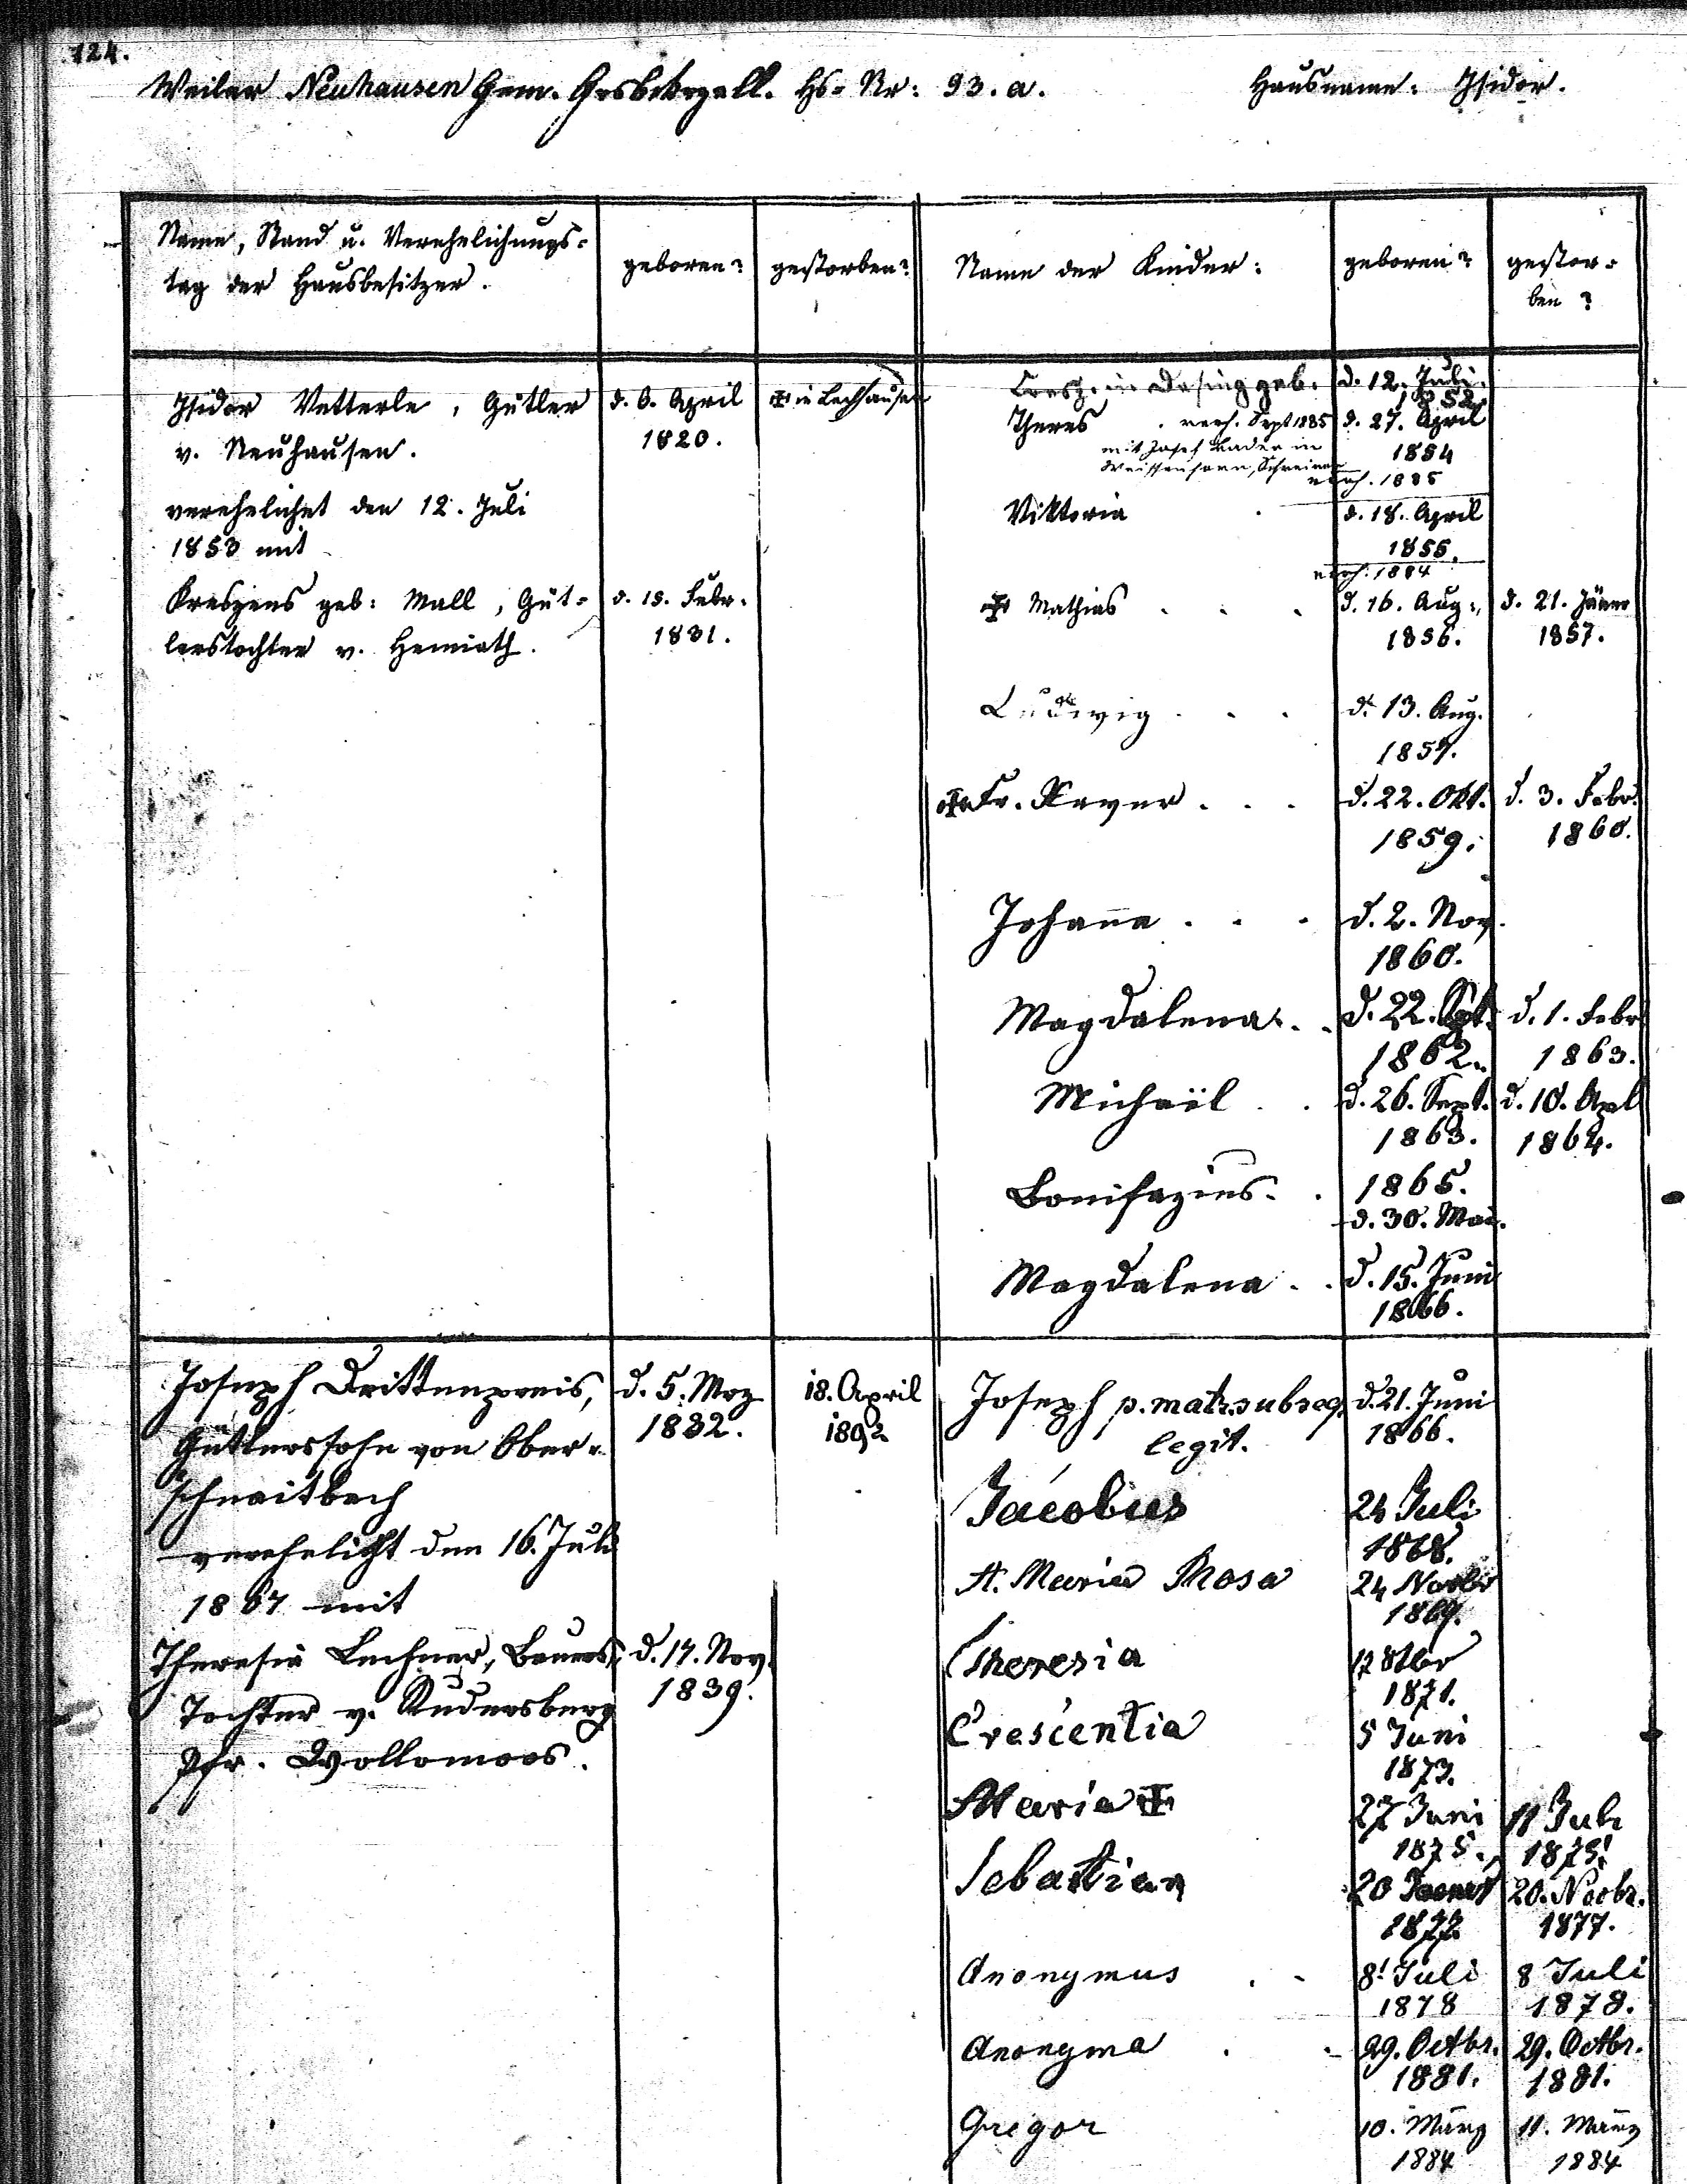 124.
Weiler Neuhausen Gem. Hs= Nr: 93. a. Hausname: Isidor.
Name, Stand u. Verehelichungs=
tag der Hausbesitzer.
geboren?
gestorben?
Name der Kinder:
geboren?
gestor=
ben?
Isidor Vetterle, Gütler
v. Neuhausen.
verehelichet den 12. Juli
1853 mit
Kreszens geb: Mall, Güt=
lerstochter v.
d. 6. April
1820.
d. 15. Febr.
1831.
✠ in Lechhausen
Cresz. in Dasing geb. d. 12. Juli.
1852.
Theres . verh. Sept 1885 d. 27. April
mit Josef Bader in 1854
Schreiner
verh. 1885
Viktoria . d. 18. April
1855.
verh. 1884
✠ Mathias . . . d. 16. Aug., d. 21. Jänner
1856. 1857.
Ludwig . . . d. 13. Aug.
1857.
✠ Fr. Xaver . . . d. 22. Okt. d. 3. Febr.
1859. 1860.
Johan̄a . . . d. 2. Nov.
1860.
Magdalena . . d. 22. Spt. d. 1. Febr
1862. 1863.
Michaël . . d. 26. Sept. d. 10. Apl
1863. 1864.
Bonifazius . . 1865.
d. 30. Mai.
Magdalena . . d. 15. Juni
1866.
Joseph Drittenpreis,
Gütlerssohn von Ober=
schneitbach
verehelicht den 16. Juli
1867 mit
Theresia Lechner, Bauers=
Tochter v. Rudersberg
Pfr. Wollomoos.
d. 5. Mrz
1832.
d. 17. Nov.
1839.
18. April
1892
Joseph p. matr. subseq. d. 21. Juni
legit. 1866.
Jacobus 24 Juli
1868.
A. Maria Rosa 24 Novbr
1869.
Theresia 17 8tbr
1871.
Crescentia 5 Juni
1873.
Maria ✠ 27 Juni 11 Juli
1875. 1875.
Sebastian 20 20. Novbr.
1877. 1877.
Anonymus . . 8. Juli 8 Juli
1878 1878.
Anonyma . . 29. Octbr. 29. Octbr.
1881. 1881.
Gregor 10. März 11. März
1884 1884